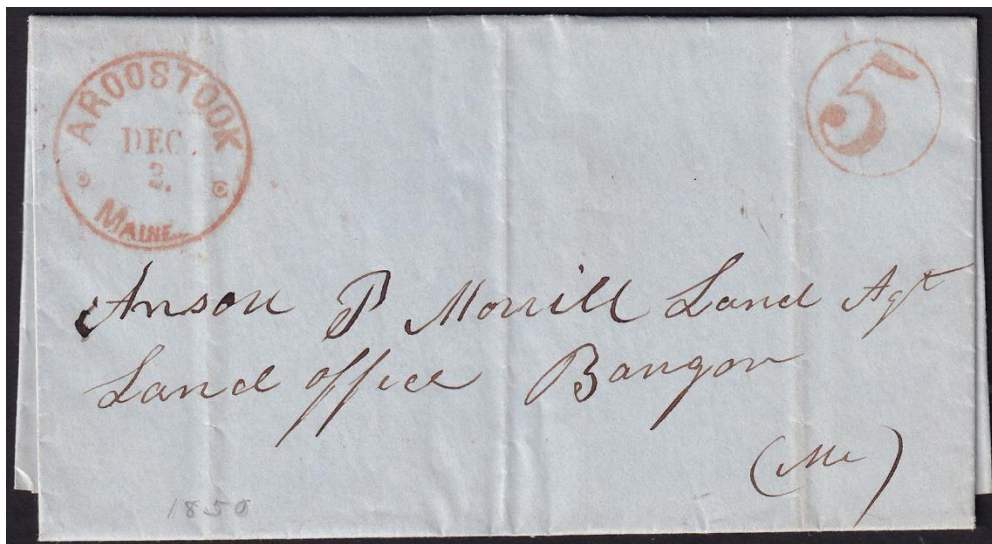 AROOSTOOK
DEC.
3.
MAINE
5
Anson P Morrill Land Agt
Land office Bangor
(Me)
1850